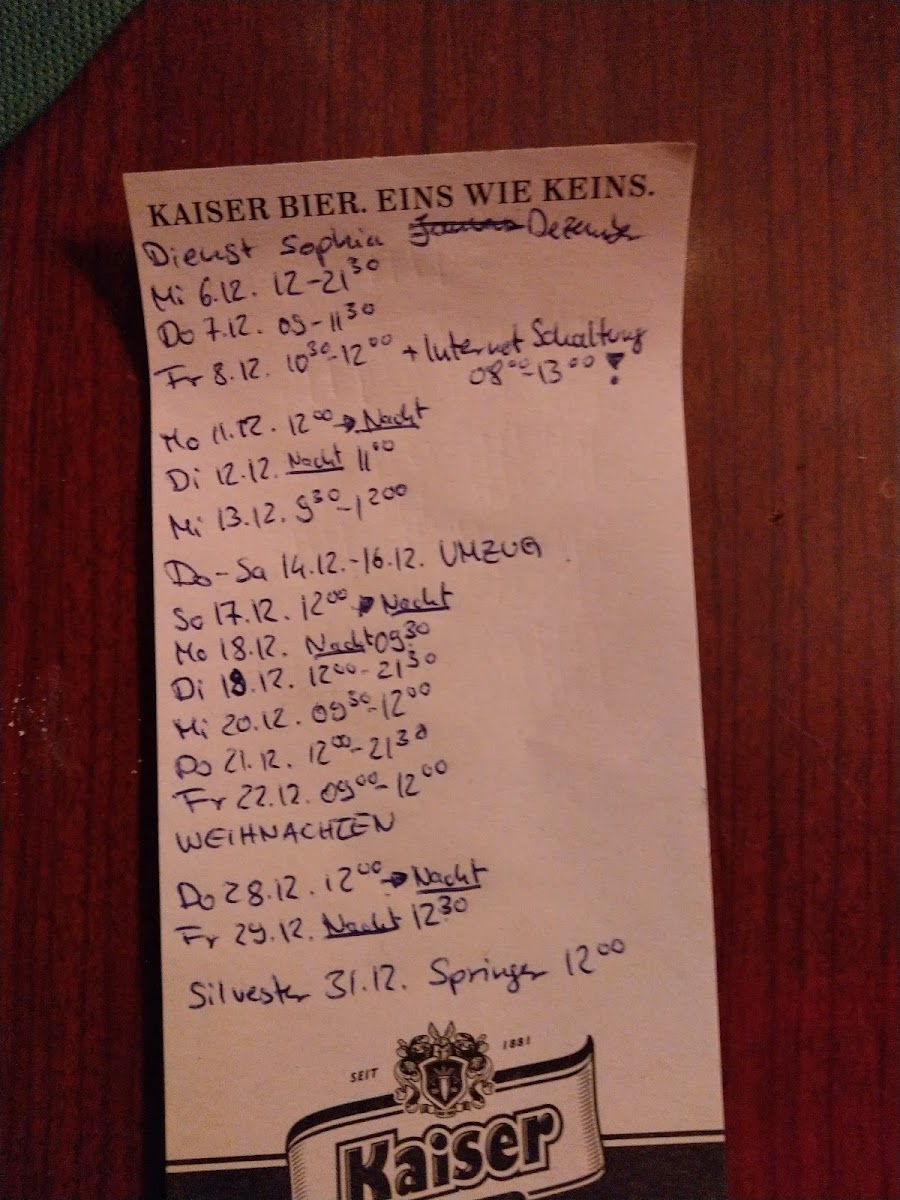 KAISER BIER. EINS WIE KEINS.
Dienst Sophia Dezember
Mi 6.12. 12-21³⁰
Do 7.12. 09-11³⁰
Fr 8.12. 10³⁰-12⁰⁰ + Internet Schaltung
08⁰⁰-13⁰⁰ !
Mo 11.12. 12⁰⁰ → Nacht
Di 12.12. Nacht 11⁰⁰
Mi 13.12. 9³⁰-12⁰⁰
Do-Sa 14.12.-16.12. UMZUG
So 17.12. 12⁰⁰ → Nacht
Mo 18.12. Nacht 09³⁰
Di 19.12. 12⁰⁰-21³⁰
Mi 20.12. 09³⁰-12⁰⁰
Do 21.12. 12⁰⁰-21³⁰
Fr 22.12. 09⁰⁰-12⁰⁰
WEIHNACHTEN
Do 28.12. 12⁰⁰ → Nacht
Fr 29.12. Nacht 12³⁰
Silvester 31.12. Springer 12⁰⁰
SEIT 1881
Kaiser